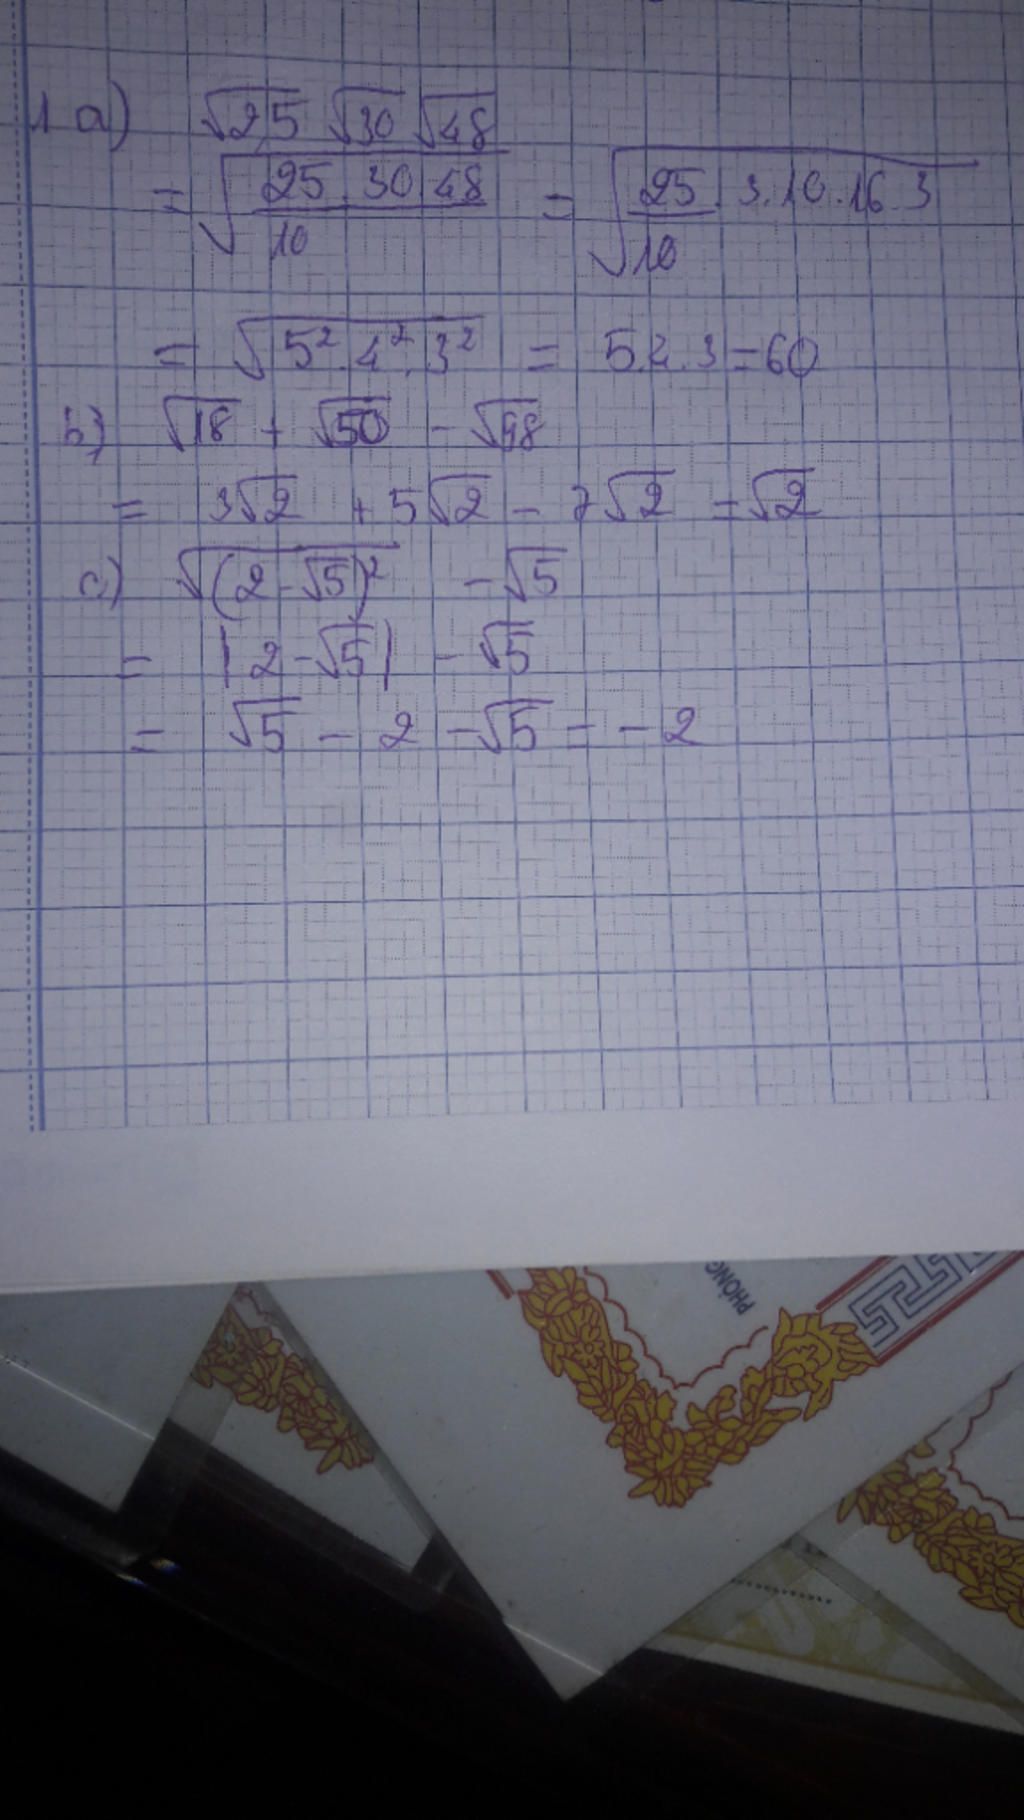 1 a) √2,5 √30 √48
= √(25.30.48/10) = √(25/10 . 3.10.16.3)
= √(5².4².3²) = 5.4.3 = 60
b) √18 + √50 - √98
= 3√2 + 5√2 - 7√2 = √2
c) √(2-√5)² - √5
= |2-√5| - √5
= √5 - 2 - √5 = -2
PHÒNG